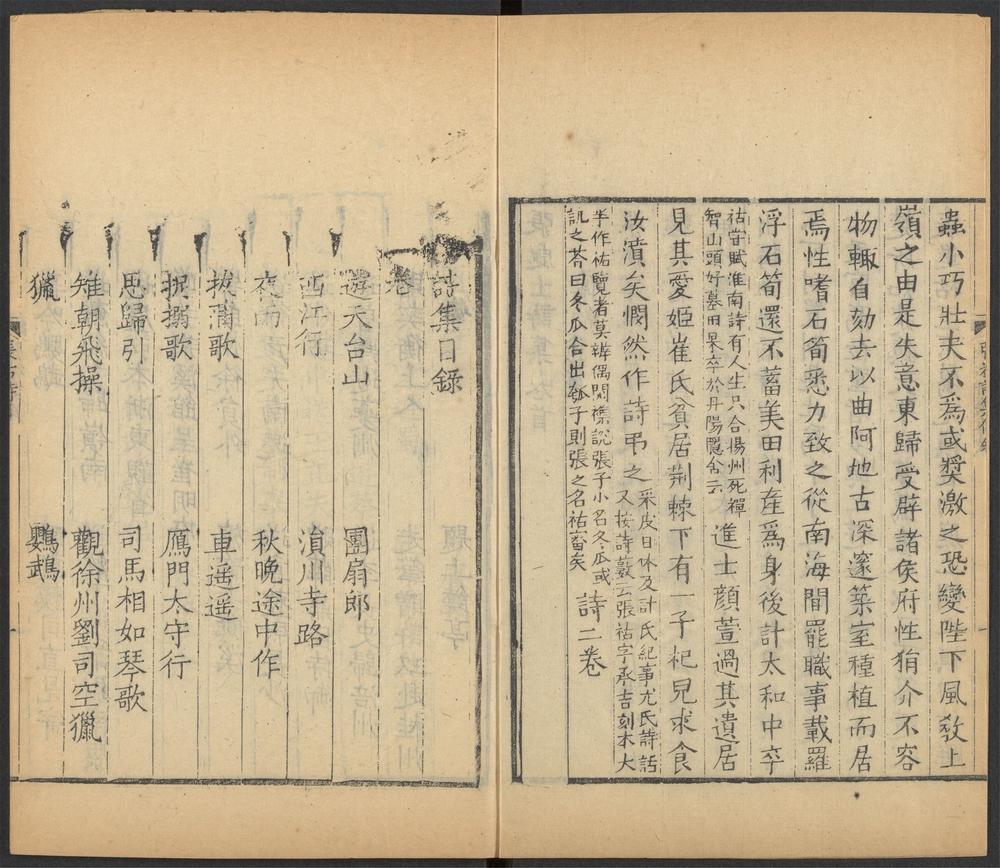 蟲小巧壯夫不爲或奬激之恐變陛下風敎上
嶺之由是失意東歸受辟諸侯府性狷介不容
物輙自劾去以曲阿地古深邃築室種植而居
焉性嗜石筍悉力致之從南海間罷職事載羅
浮石筍還不蓄美田利產爲身後計太和中卒
祜甞賦淮南詩有人生只合揚州死禪
智山頭好墓田果卒於丹陽隱舍云
進士顔萱過其遺居
見其愛姬崔氏貧居荆棘下有一子杞兒求食
汝濆矣憫然作詩弔之
采皮日休及計氏紀事尤氏詩話
又按詩藪云張祜字承吉刻本大
半作祐覽者莫辨偶閱襍說張子小名冬瓜或
訊之荅曰冬瓜合出瓠子則張之名祜審矣
詩二卷
詩集目錄
卷
遊天台山 團扇郎
西江行 湞川寺路
夜雨 秋晩途中作
拔蒲歌 車遥遥
捉搦歌 鴈門太守行
思歸引 司馬相如琴歌
雉朝飛操 觀徐州劉司空獵
獵 鸚鵡